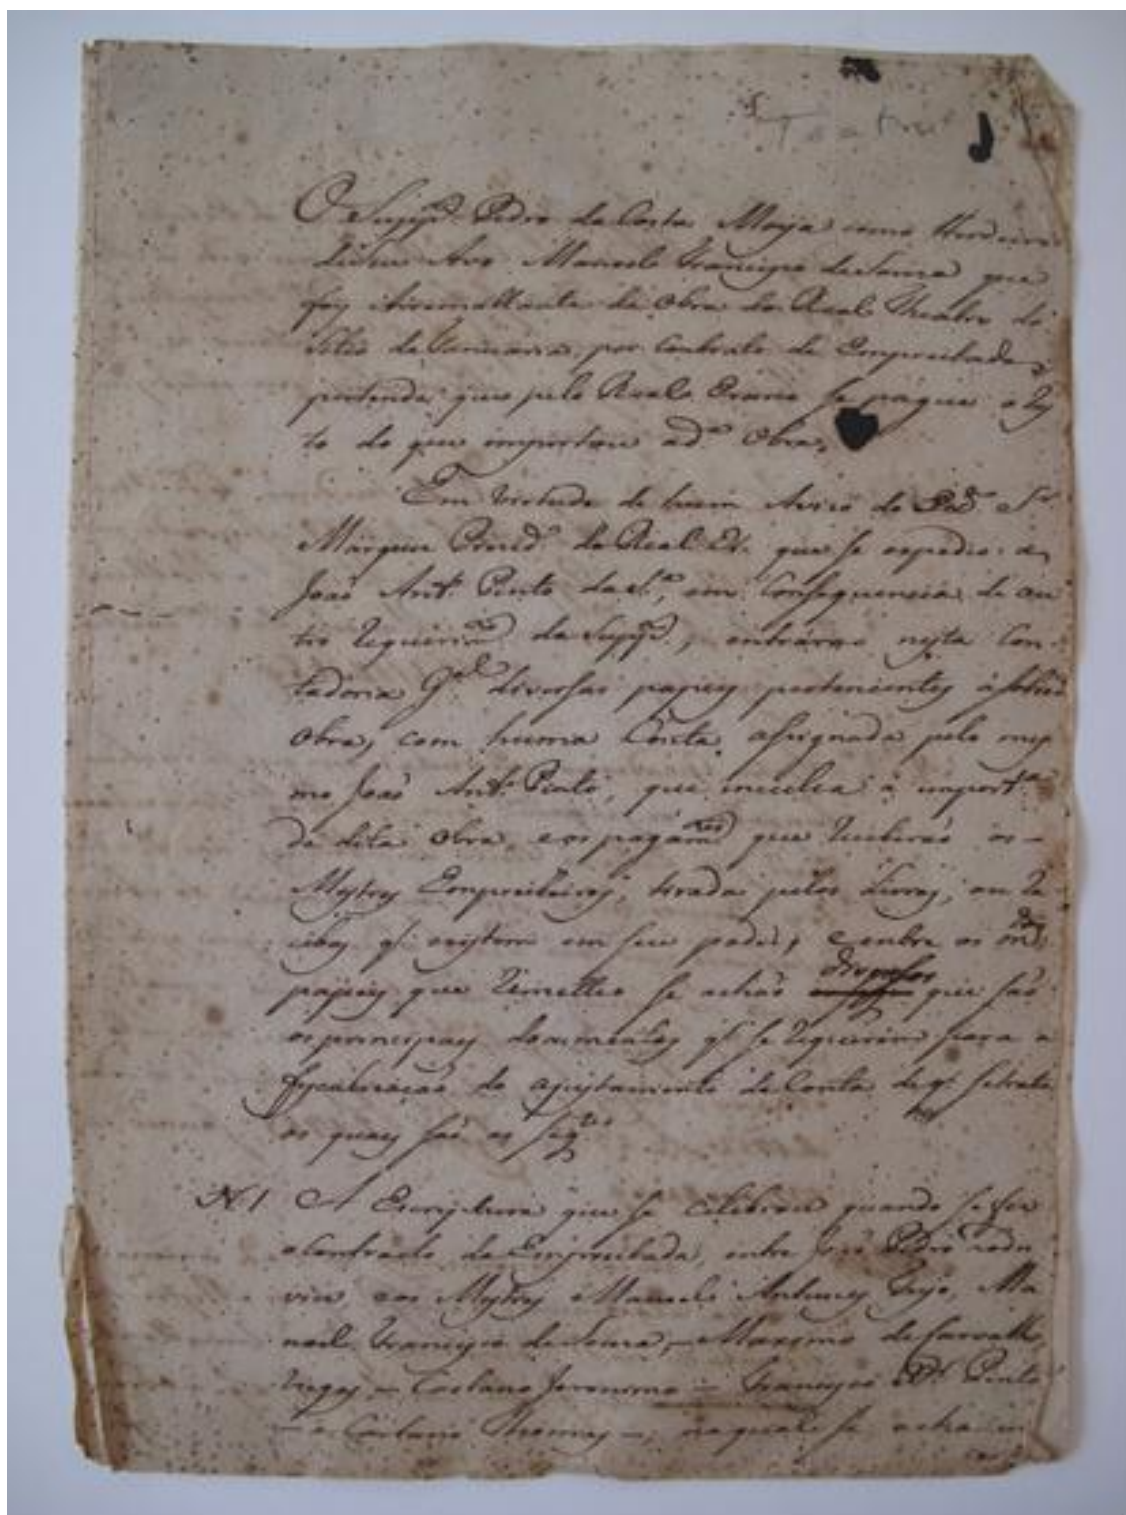 O Supp.e Pedro da Costa Maya como Herdeiro
de seu Avo Manoel Francisco de Souza que
foy Arrematante da Obra do Real Theatro do
Sitio de por Contrato de Empreitada,
pertende que pelo Real Erario se pague o res
to do que importou a d.a Obra,
Em virtude de hum Aviso do S.r
Marquez Prezid.e do Real Er. que se expedio a
João Ant.o Pinto da S.a, em Consequencia de ou
tro Requerim.to do Supp.e, entrárão nesta Con-
tadoria G.al diversos papeys pertencentes á sobred.a
Obra, com huma Conta asignada pelo mes
mo João Ant.o Pinto, que inculca a import.a
da dita Obra, e os pagam.tos que receberão os -
Mestres Empreiteiros, tirada pelos Livros, ou re
cibos q. existem em seu poder; e entre os
papeys que remetteo se achão diversos que são
os principaes documentos q. se requerem para a
fiscalização do ajustamento da Conta de q. se trata
os quaes são os seg.tes
N.1 A Escriptura que se celebrou quando se fez
o Contrato da Empreitada, entre João Pedro Lodo
vice, e os Mestres Manoel Antunes Feyo, Ma
noel Francisco de Souza, - Maximo de Carvalho,
- Caetano Jeronimo - Francisco X.er Pinto
- e Caetano Thomas -, na qual se acha